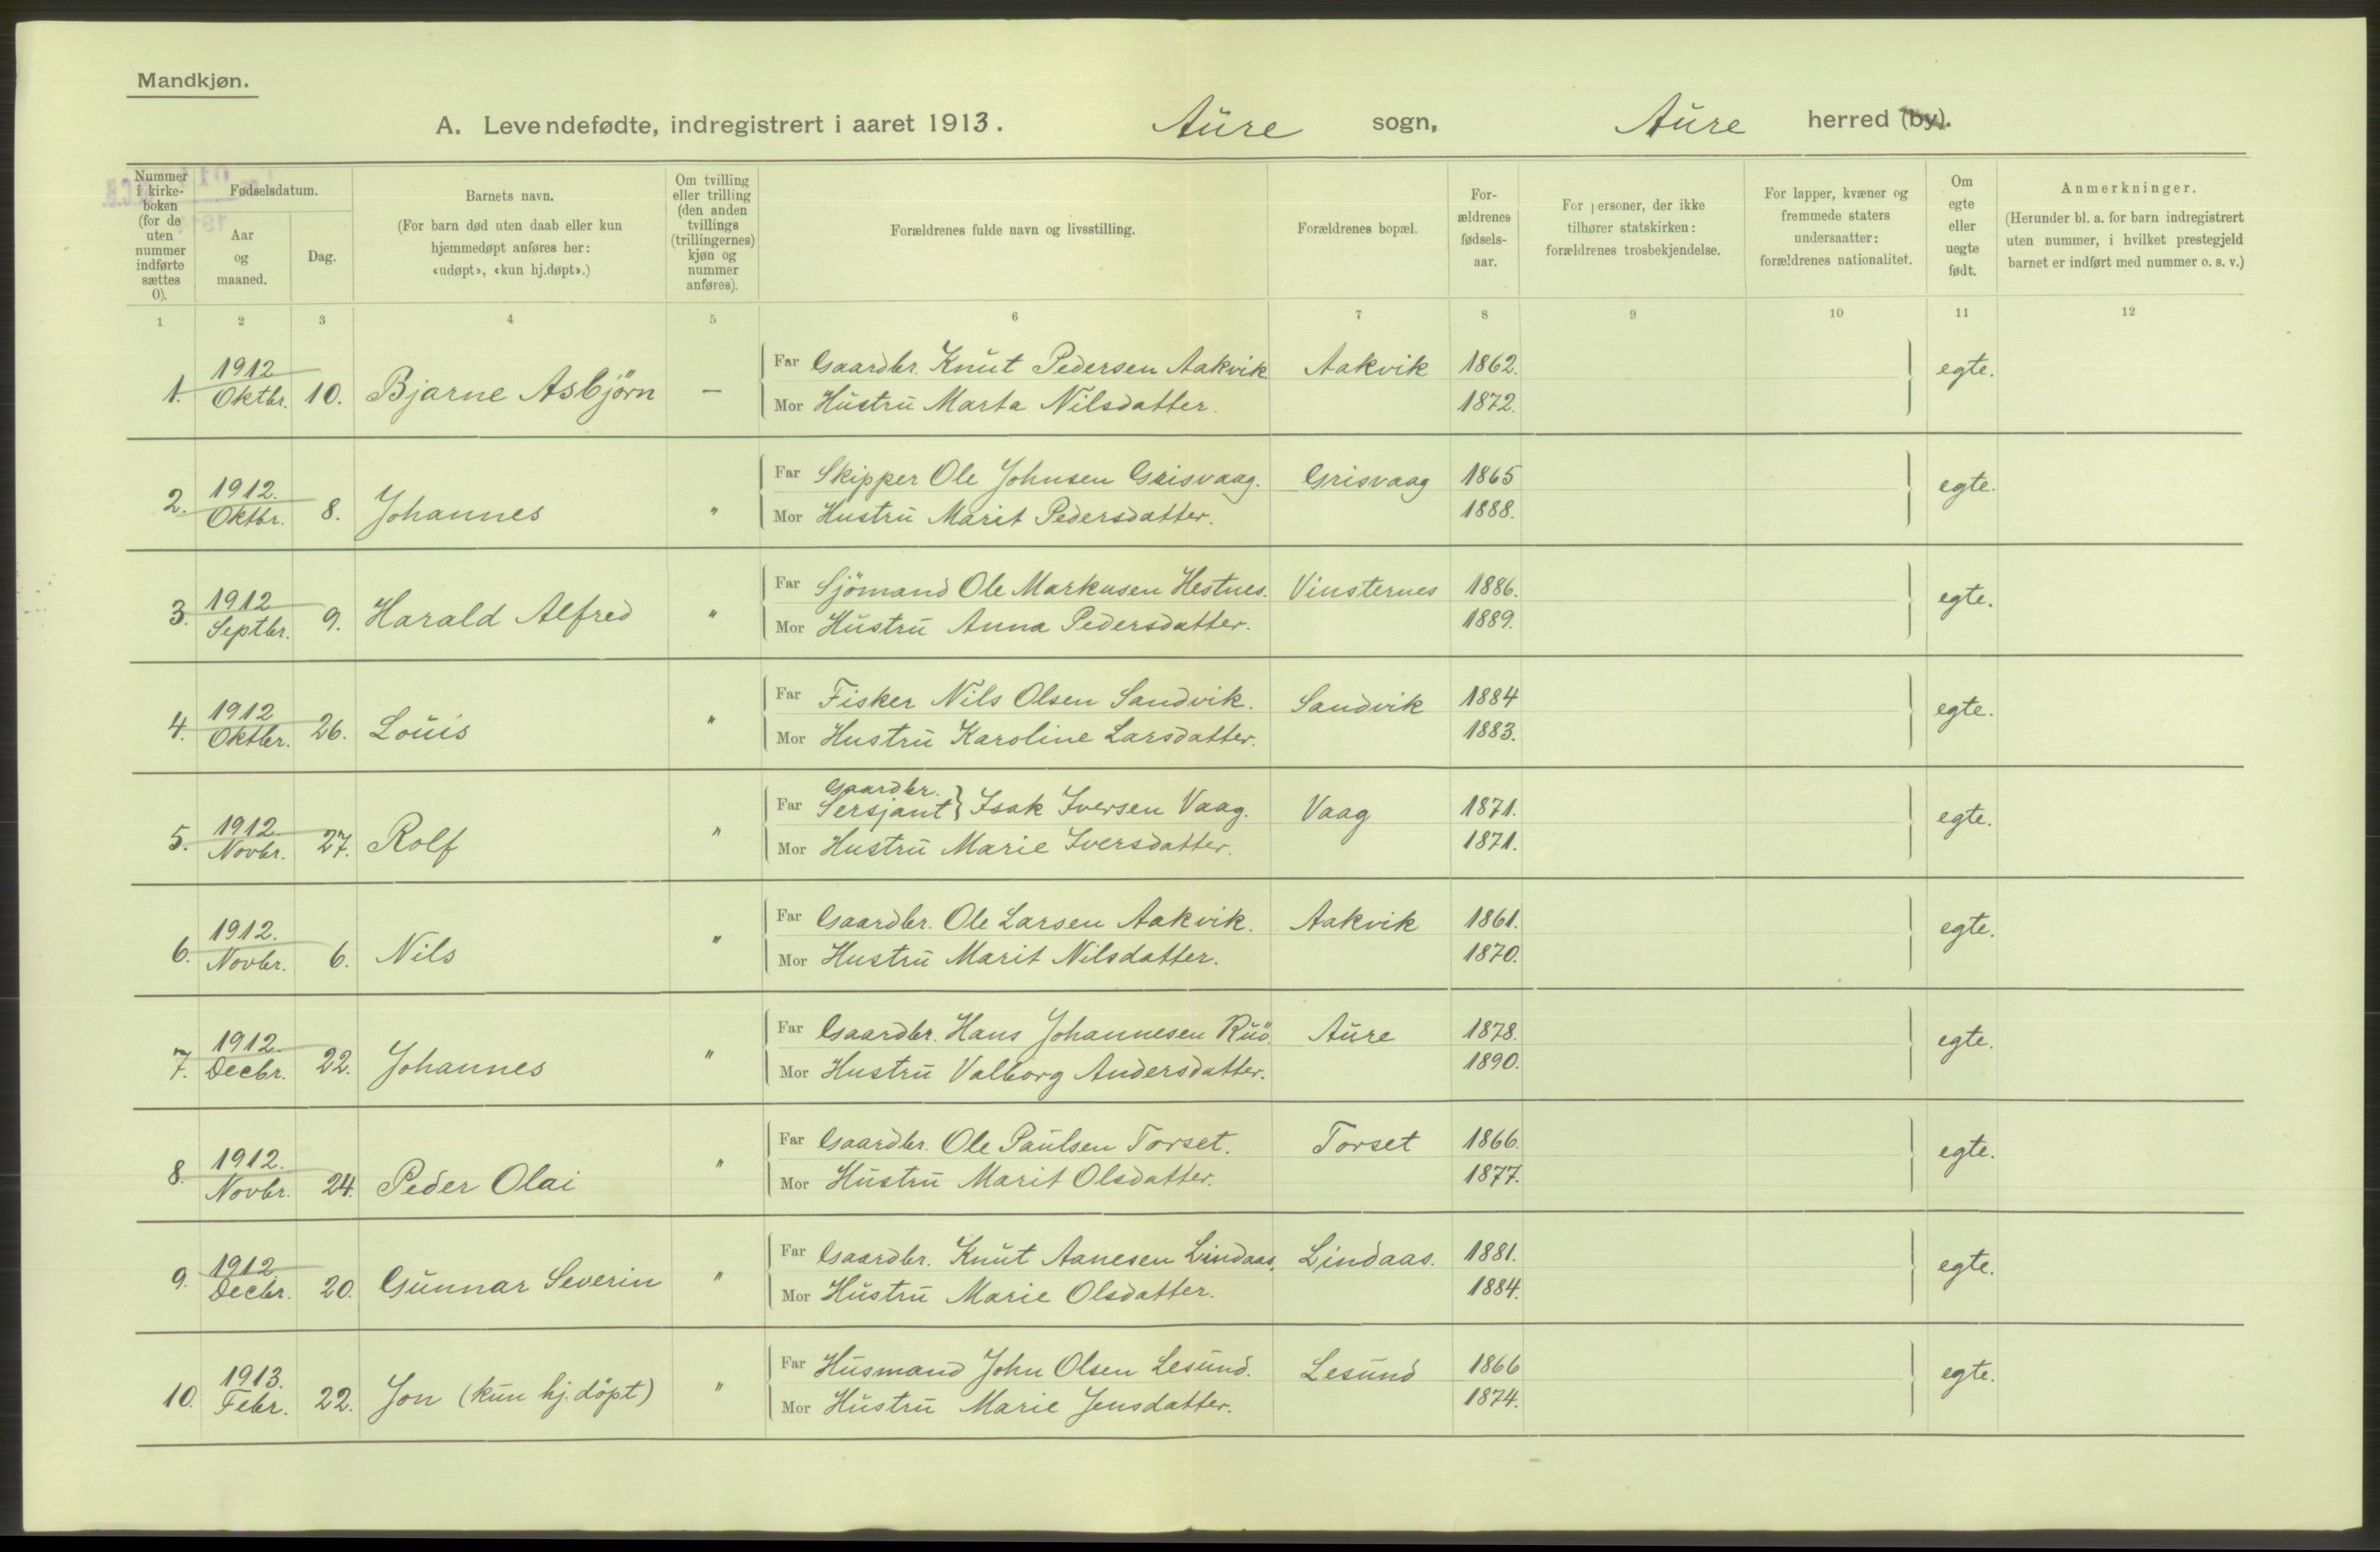 Mandkjøn.
A. Levendefødte, indregistrert i aaret 1913. Aure sogn, Aure herred (by).
Nummer i kirke-boken (for de uten nummer indførte sættes 0).
Fødselsdatum.
Aar og maaned.
Dag.
Barnets navn.
(For barn død uten daab eller kun hjemmedøpt anføres her: «udøpt», «kun hj.døpt».)
Om tvilling eller trilling (den anden tvillings (trillingernes) kjøn og nummer anføres).
Forældrenes fulde navn og livsstilling.
Forældrenes bopæl.
For-ældrenes fødsels-aar.
For personer, der ikke tilhører statskirken: forældrenes trosbekjendelse.
For lapper, kvæner og fremmede staters undersaatter: forældrenes nationalitet.
Om egte eller uegte født.
Anmerkninger.
(Herunder bl. a. for barn indregistrert uten nummer, i hvilket prestegjeld barnet er indført med nummer o. s. v.)
1 2 3 4 5 6 7 8 9 10 11 12
1. 1912 Oktbr. 10. Bjarne Asbjörn — Far Gaardbr. Knut Pedersen Aakvik Aakvik 1862. egte.
Mor Hustru Marta Nilsdatter. 1872.
2. 1912. Oktbr. 8. Johannes " Far Skipper Ole Johnsen Grisvaag. Grisvaag 1865 egte.
Mor Hustru Marit Pedersdatter. 1888.
3. 1912 Septbr. 9. Harald Alfred " Far Sjömand Ole Markusen Hestnes. Vinsternes 1886. egte.
Mor Hustru Anna Pedersdatter. 1889.
4. 1912 Oktbr. 26. Louis " Far Fisker Nils Olsen Sandvik. Sandvik 1884 egte.
Mor Hustru Karoline Larsdatter. 1883.
5. 1912 Novbr. 27. Rolf " Far Gaardbr. Sersjant } Isak Iversen Vaag. Vaag 1871. egte.
Mor Hustru Marie Iversdatter. 1871.
6. 1912. Novbr. 6. Nils " Far Gaardbr. Ole Larsen Aakvik. Aakvik 1861. egte.
Mor Hustru Marit Nilsdatter. 1870.
7. 1912. Decbr. 22. Johannes " Far Gaardbr. Hans Johannesen Rud. Aure 1878. egte.
Mor Hustru Valborg Andersdatter. 1890.
8. 1912. Novbr. 24. Peder Olai " Far Gaardbr. Ole Paulsen Torset. Torset 1866. egte.
Mor Hustru Marit Olsdatter. 1877.
9. 1912 Decbr. 20. Gunnar Severin " Far Gaardbr. Knut Aanesen Lindaas. Lindaas. 1881. egte.
Mor Hustru Marie Olsdatter. 1884.
10. 1913. Febr. 22. Jon (kun hj. döpt) " Far Husmand John Olsen Lesund. Lesund 1866 egte.
Mor Hustru Marie Jensdatter. 1874.